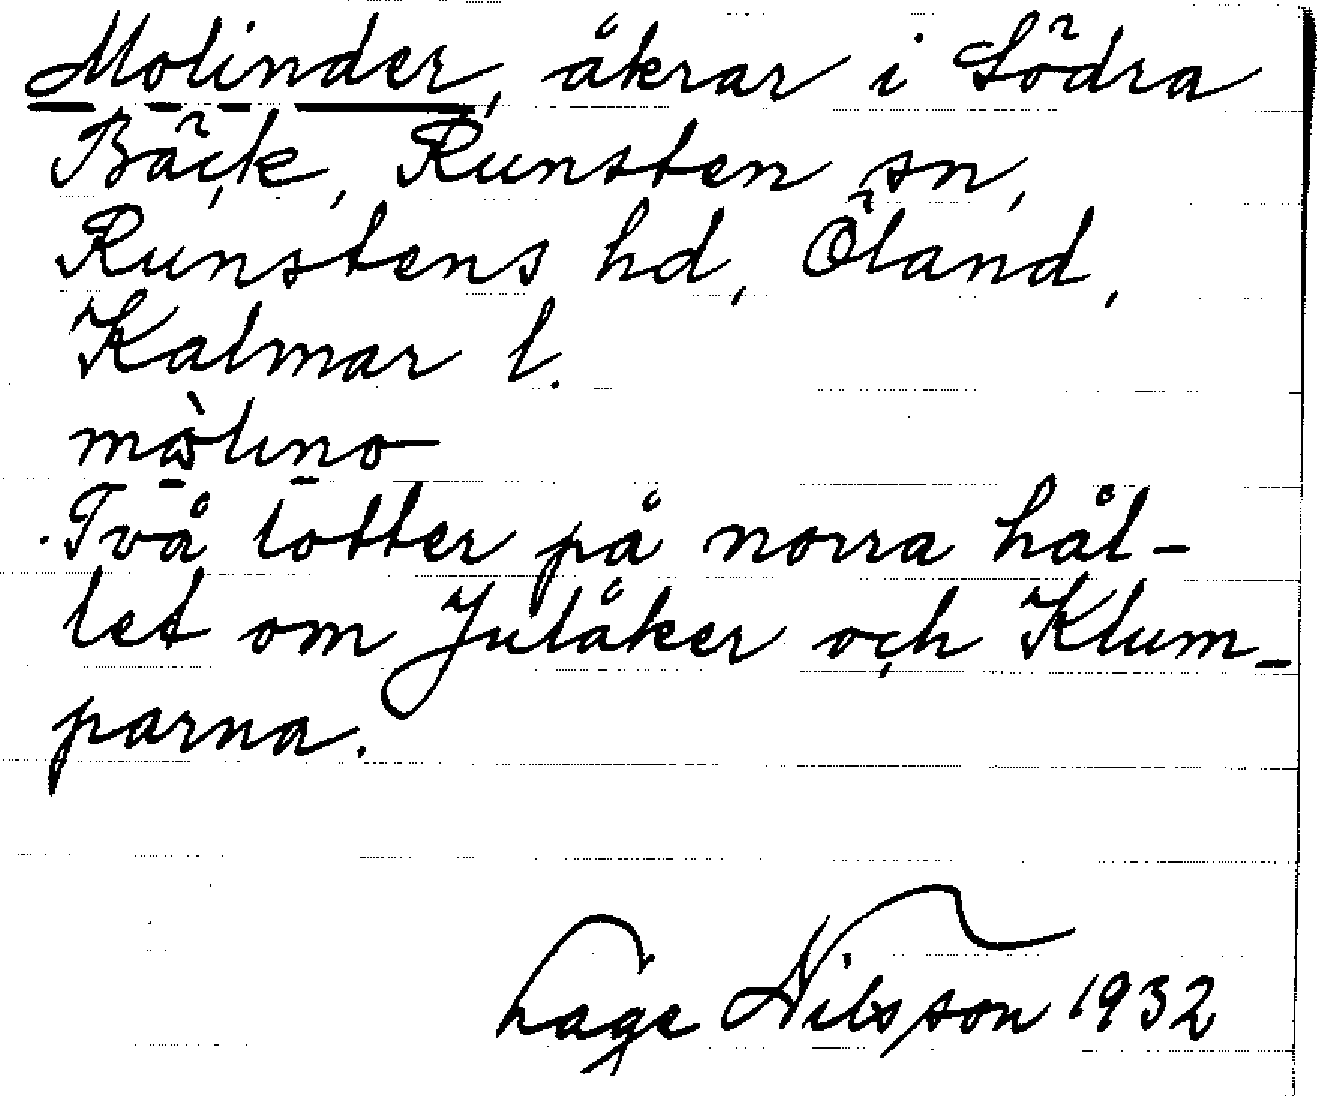 Molinder, åkrar i Södra
Bäck, Runsten sn,
Runstens hd, Öland,
Kalmar l.
Två lotter på norra hål-
let om Julåker och Klum-
parna.
Låge Nilsson 1932